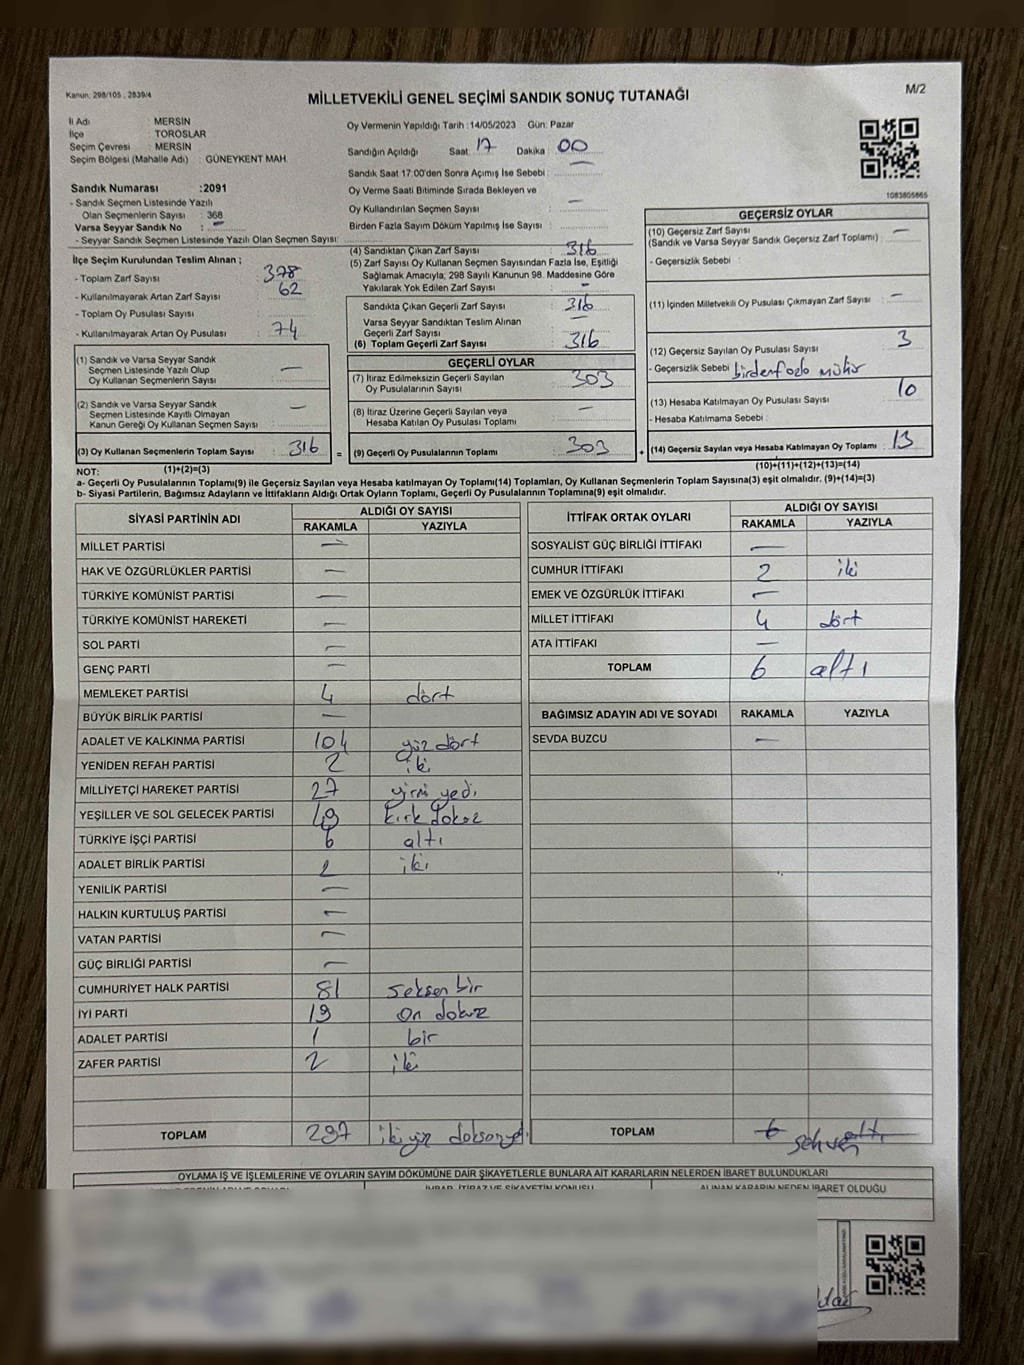 Kanun: 298/105 , 2839/4
MİLLETVEKİLİ GENEL SEÇİMİ SANDIK SONUÇ TUTANAĞI
M/2
İl Adı : MERSİN
İlçe : TOROSLAR
Seçim Çevresi : MERSİN
Seçim Bölgesi (Mahalle Adı) : GÜNEYKENT MAH.
Sandık Numarası :2091
- Sandık Seçmen Listesinde Yazılı
Olan Seçmenlerin Sayısı : 368
Varsa Seyyar Sandık No : –
- Seyyar Sandık Seçmen Listesinde Yazılı Olan Seçmen Sayısı:
İlçe Seçim Kurulundan Teslim Alınan ;
- Toplam Zarf Sayısı : 378
- Kullanılmayarak Artan Zarf Sayısı : 62
- Toplam Oy Pusulası Sayısı :
- Kullanılmayarak Artan Oy Pusulası : 74
(1) Sandık ve Varsa Seyyar Sandık
Seçmen Listesinde Yazılı Olup
Oy Kullanan Seçmenlerin Sayısı : —
(2) Sandık ve Varsa Seyyar Sandık
Seçmen Listesinde Kayıtlı Olmayan
Kanun Gereği Oy Kullanan Seçmen Sayısı : —
(3) Oy Kullanan Seçmenlerin Toplam Sayısı : 316 =
Oy Vermenin Yapıldığı Tarih : 14/05/2023 Gün: Pazar
Sandığın Açıldığı Saat: 17 Dakika : 00
Sandık Saat 17:00'den Sonra Açımış İse Sebebi : —
Oy Verme Saati Bitiminde Sırada Bekleyen ve
Oy Kullandırılan Seçmen Sayısı : —
Birden Fazla Sayım Döküm Yapılmış İse Sayısı :
(4) Sandıktan Çıkan Zarf Sayısı : 316
(5) Zarf Sayısı Oy Kullanan Seçmen Sayısından Fazla İse, Eşitliği
Sağlamak Amacıyla; 298 Sayılı Kanunun 98. Maddesine Göre
Yakılarak Yok Edilen Zarf Sayısı : –
Sandıkta Çıkan Geçerli Zarf Sayısı : 316
Varsa Seyyar Sandıktan Teslim Alınan
Geçerli Zarf Sayısı : —
(6) Toplam Geçerli Zarf Sayısı : 316
GEÇERLİ OYLAR
(7) İtiraz Edilmeksizin Geçerli Sayılan
Oy Pusulalarının Sayısı : 303
(8) İtiraz Üzerine Geçerli Sayılan veya
Hesaba Katılan Oy Pusulası Toplamı : —
(9) Geçerli Oy Pusulalarının Toplamı : 303 +
1083805865
GEÇERSİZ OYLAR
(10) Geçersiz Zarf Sayısı : —
(Sandık ve Varsa Seyyar Sandık Geçersiz Zarf Toplamı)
- Geçersizlik Sebebi :
(11) İçinden Milletvekili Oy Pusulası Çıkmayan Zarf Sayısı : –
(12) Geçersiz Sayılan Oy Pusulası Sayısı : 3
- Geçersizlik Sebebi : birdenfazla mühür
(13) Hesaba Katılmayan Oy Pusulası Sayısı : 10
- Hesaba Katılmama Sebebi :
(14) Geçersiz Sayılan veya Hesaba Katılmayan Oy Toplamı : 13
NOT: (1)+(2)=(3)
(10)+(11)+(12)+(13)=(14)
a- Geçerli Oy Pusulalarının Toplamı(9) ile Geçersiz Sayılan veya Hesaba katılmayan Oy Toplamı(14) Toplamları, Oy Kullanan Seçmenlerin Toplam Sayısına(3) eşit olmalıdır. (9)+(14)=(3)
b- Siyasi Partilerin, Bağımsız Adayların ve İttifakların Aldığı Ortak Oyların Toplamı, Geçerli Oy Pusulalarının Toplamına(9) eşit olmalıdır.
SİYASİ PARTİNİN ADI ALDIĞI OY SAYISI
RAKAMLA YAZIYLA
MİLLET PARTİSİ —
HAK VE ÖZGÜRLÜKLER PARTİSİ —
TÜRKİYE KOMÜNİST PARTİSİ —
TÜRKİYE KOMÜNİST HAREKETİ —
SOL PARTİ —
GENÇ PARTİ —
MEMLEKET PARTİSİ 4 dört
BÜYÜK BİRLİK PARTİSİ —
ADALET VE KALKINMA PARTİSİ 104 yüz dört
YENİDEN REFAH PARTİSİ 2 iki
MİLLİYETÇİ HAREKET PARTİSİ 27 yirmi yedi
YEŞİLLER VE SOL GELECEK PARTİSİ 49 kırk dokuz
TÜRKİYE İŞÇİ PARTİSİ 6 altı
ADALET BİRLİK PARTİSİ 2 iki
YENİLİK PARTİSİ —
HALKIN KURTULUŞ PARTİSİ —
VATAN PARTİSİ —
GÜÇ BİRLİĞİ PARTİSİ —
CUMHURİYET HALK PARTİSİ 81 seksen bir
İYİ PARTİ 19 on dokuz
ADALET PARTİSİ 1 bir
ZAFER PARTİSİ 2 iki
TOPLAM 297 ikiyüz doksanyedi
İTTİFAK ORTAK OYLARI ALDIĞI OY SAYISI
RAKAMLA YAZIYLA
SOSYALİST GÜÇ BİRLİĞİ İTTİFAKI —
CUMHUR İTTİFAKI 2 iki
EMEK VE ÖZGÜRLÜK İTTİFAKI —
MİLLET İTTİFAKI 4 dört
ATA İTTİFAKI —
TOPLAM 6 altı
BAĞIMSIZ ADAYIN ADI VE SOYADI RAKAMLA YAZIYLA
SEVDA BUZCU —
TOPLAM 6 altı
sehven
OYLAMA İŞ VE İŞLEMLERİNE VE OYLARIN SAYIM DÖKÜMÜNE DAİR ŞİKAYETLERLE BUNLARA AİT KARARLARIN NELERDEN İBARET BULUNDUKLARI
İHBAR, İTİRAZ VE ŞİKAYETİN KONUSU
ALINAN KARARIN NEDEN İBARET OLDUĞU